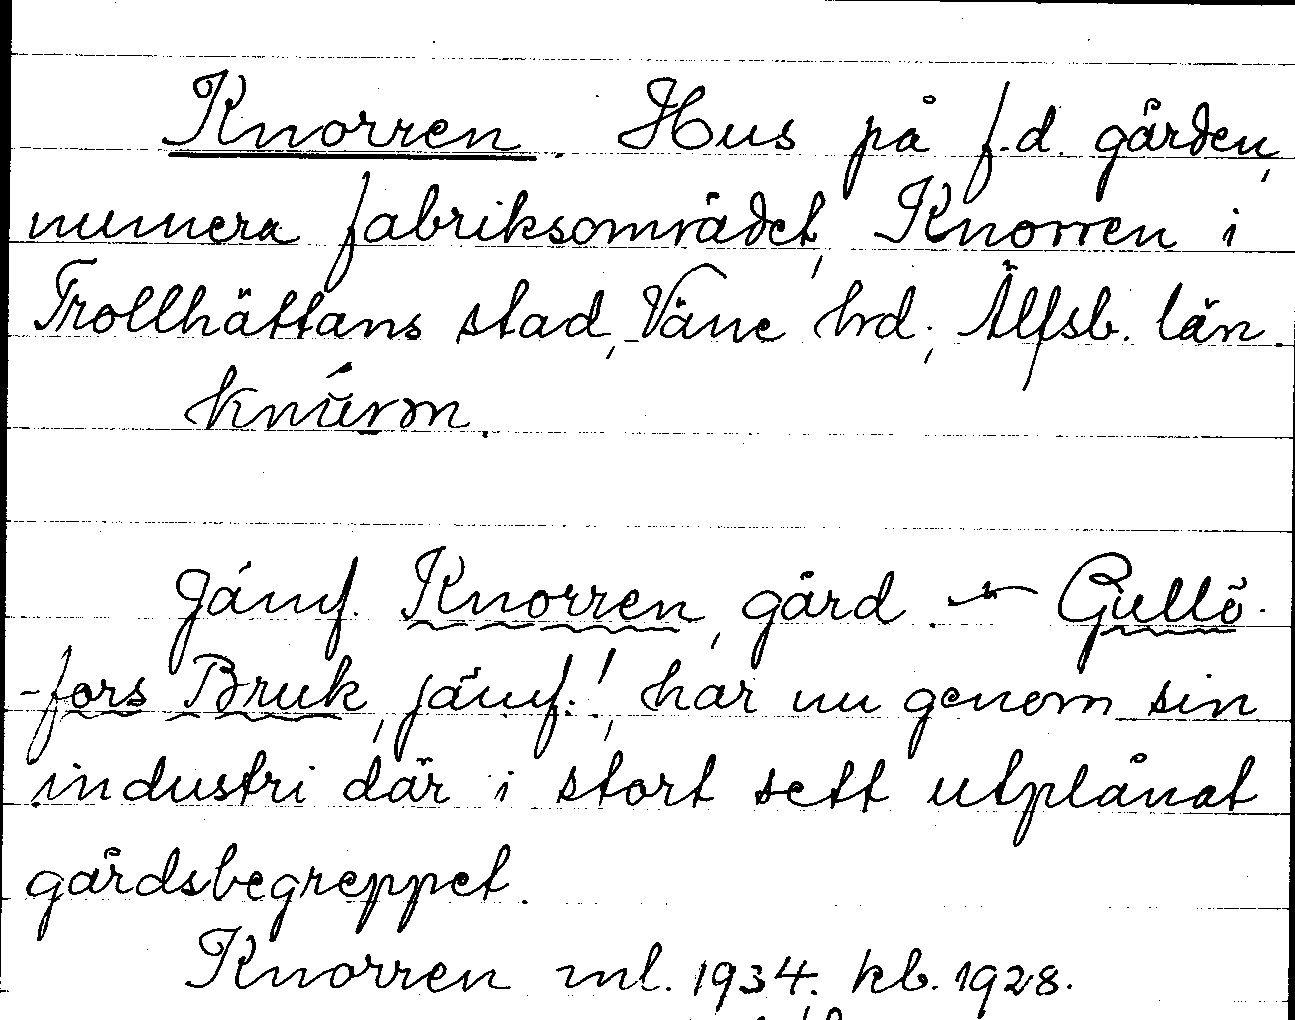 Knorren. Hus på f.d. gården,
numera fabriksområdet, Knorren i
Trollhättans stad, Väne hd, Älfsb. län.
Jämf. Knorren, gård. — Gullö-
-fors Bruk, jämf.!, har nu genom sin
industri där i stort sett utplånat
gårdsbegreppet.
Knorren ml. 1934. kb. 1928.